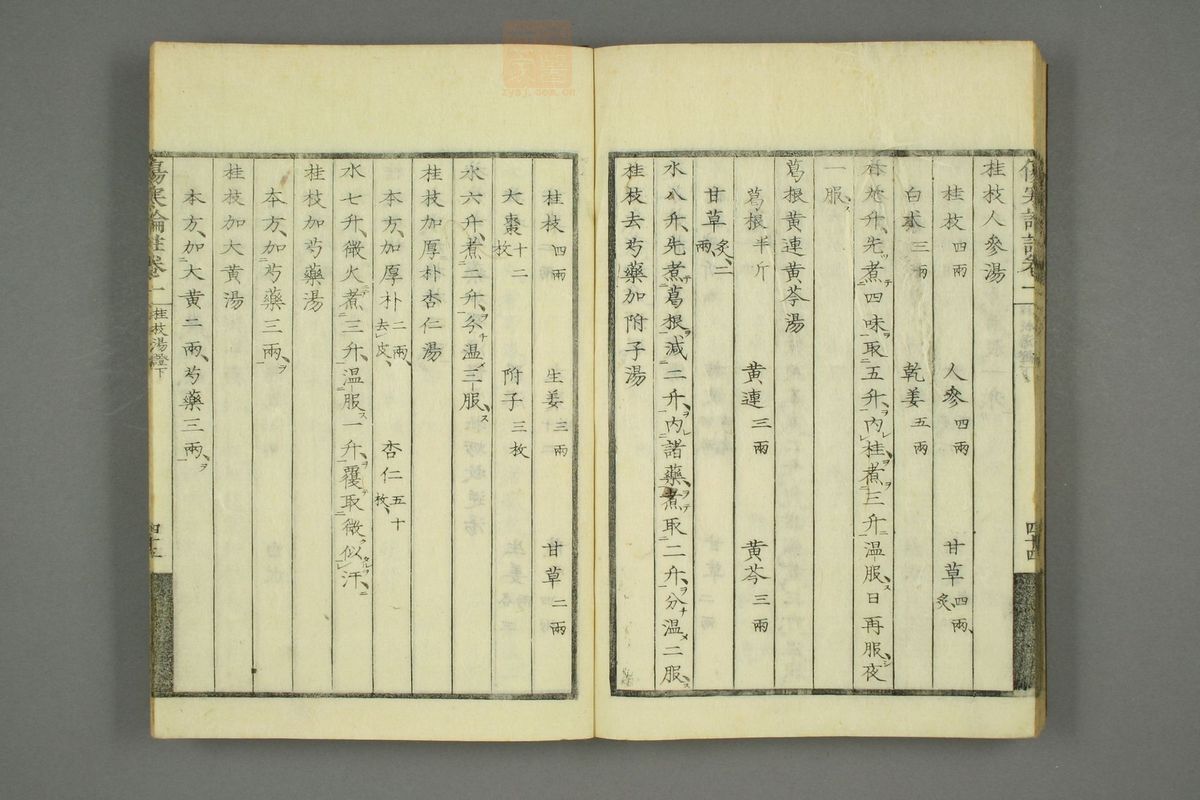 桂枝人參湯
桂枝四兩 人參四兩 甘草四兩、炙、
白朮三兩 乾姜五兩
升、先煮四味取五升、內桂煮三升、温服、日再服、夜
一服、
葛根黄連黄芩湯
葛根半斤 黄連三兩 黄芩三兩
甘草炙、二兩、
水八升、先煮葛根、減二升、內諸藥、煮取二升、分温二服、
桂枝去芍藥加附子湯
桂枝四兩 生姜三兩 甘草二兩
大棗十二枚 附子三枚
水六升、煮二升、分温三服、
桂枝加厚朴杏仁湯
本方、加厚朴二兩、去皮、 杏仁五十枚、
水七升、微火煮三升、温服一升、覆取微似汗、
桂枝加芍藥湯
本方、加芍藥三兩、
桂枝加大黄湯
本方、加大黄二兩、芍藥三兩、
傷寒論註卷一 桂枝湯證下 四十三
四十四
zysj.com.cn